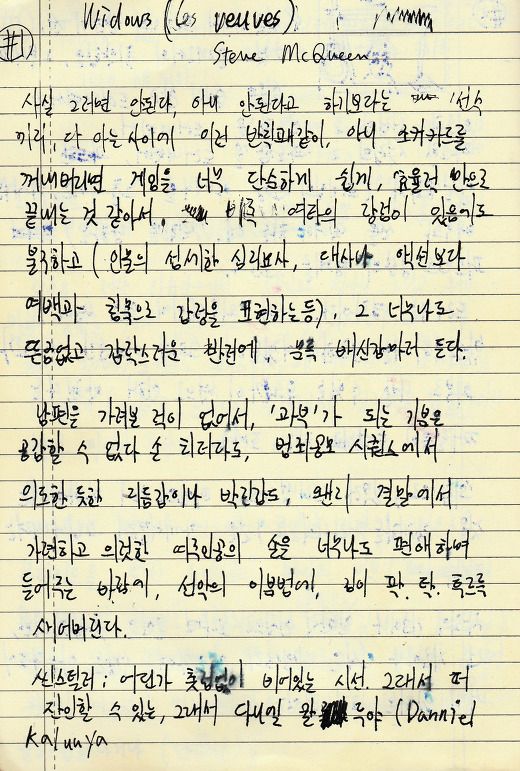 Widows (Les veuves)
#1
Steve McQueen
사실 그러면 안된다, 아니 안된다고 하기보라는 '선수
끼리, 다 아는 사이에 이런 반칙패같이, 아니 조커카드를
꺼내버리면 게임을 너무 단순하게 쉽게, 효율럭 만으로
끝내는 것 같아서, 비록 여타의 강점이 있음에도
불구하고 (인물의 섬세한 심리묘사, 대사나 액션보다
여백과 침묵으로 감정을 표현하는 등), 그 너무나도
뜬금없고 갑작스러운 반전에, 문득 배신감마저 든다.
남편을 가려본 적이 없어서, '과부'가 되는 기분은
공감할 수 없다 손 치더라도, 범죄공모 시퀀스에서
의도한 듯한 리듬감이나 박진감도, 왠지 결말에서
가련하고 의젓한 여주인공의 손을 너무나도 편애하며
들어주는 바람에, 선악의 이분법에, 김이 팍, 탁, 흐르륵
새어버린다.
씬스틸러: 어딘가 훗겁없이 비어있는 시선. 그래서 더
잔인할 수 있는, 그래서 다니엘 칼 두야 (Danniel
Kaluuya